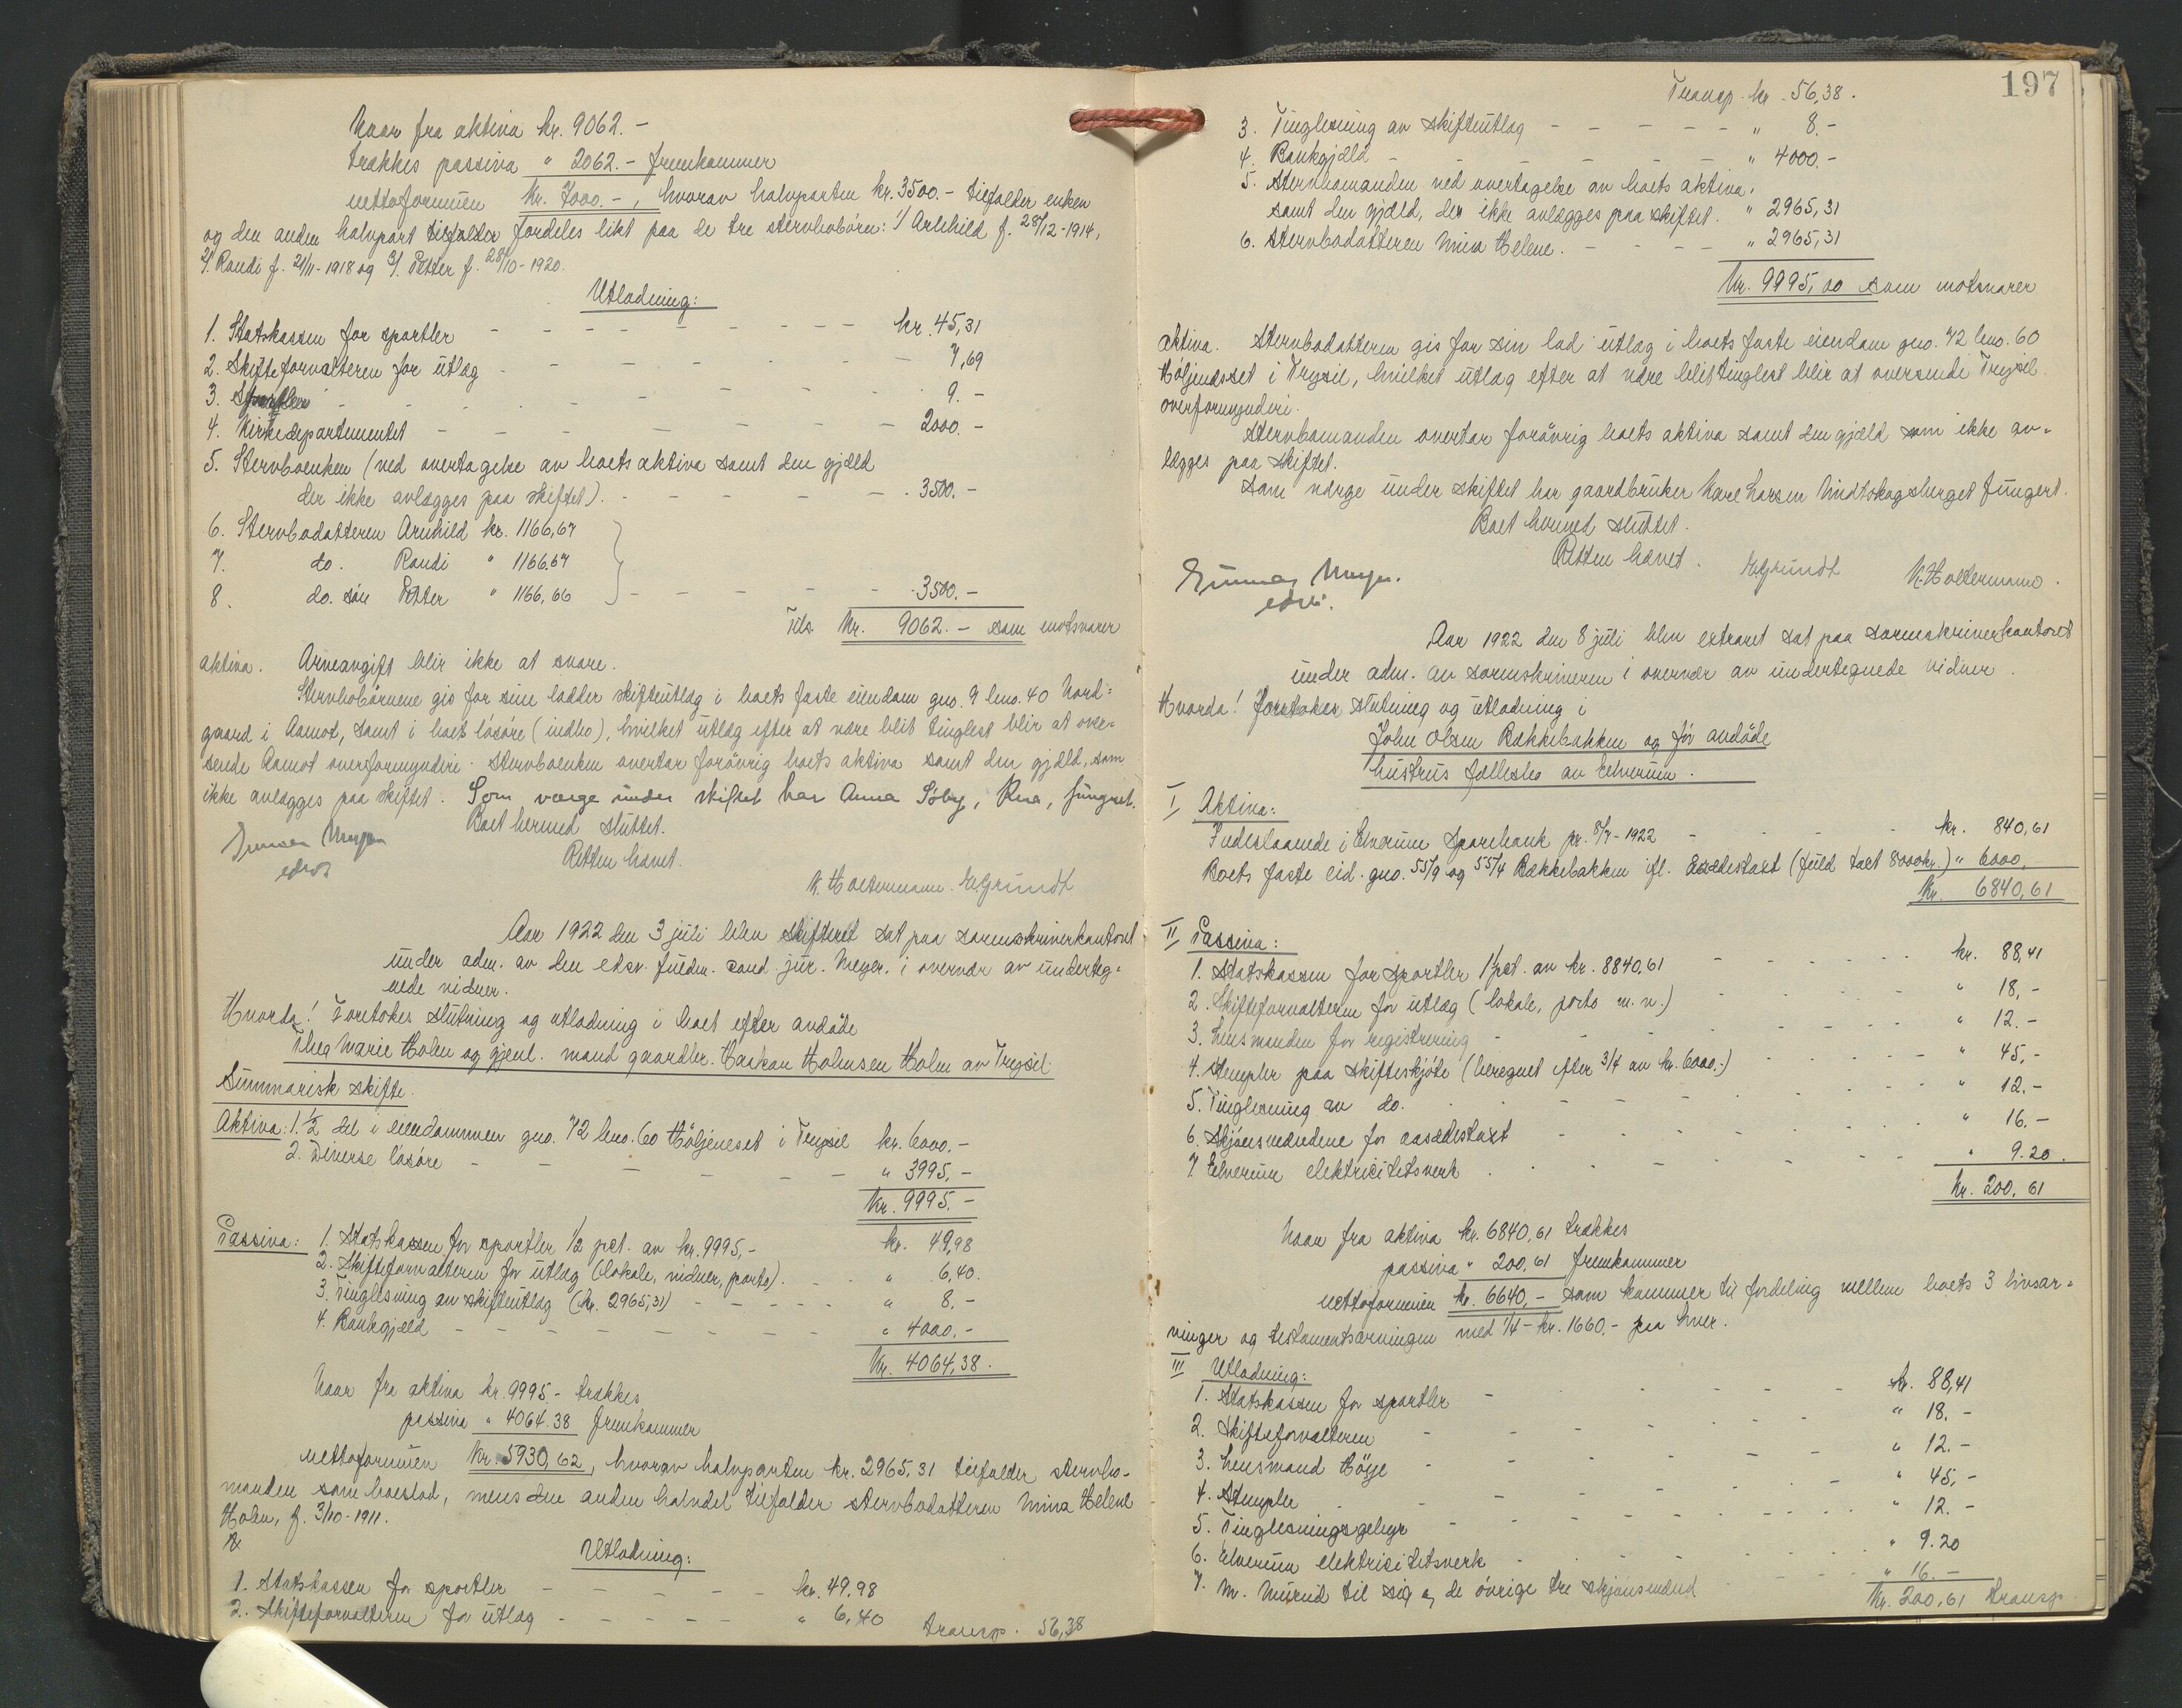 Naar fra aktiva kr. 9062.-
trækkes passiva " 2062.- fremkommer
nettoformuen kr. 7000.-, hvorav halvparten kr. 3500.- tilfalder enken
og den anden halvpart tilfalder fordeles likt paa de tre stervbobörn: 1/ Arnhild f. 28/12-1914,
2/. Randi f. 21/11-1918 og 3/. Petter f. 28/10-1920.
Utlodning:
1. Statskassen for sportler - - - - - - - kr. 45,31
2. Skifteforvalteren for utlæg - - - - - 7,69
3. - - - - - - 9.-
4. Kirkedepartementet - - - - - - 2000.-
5. Stervboenken (ved overtagelse av boets aktiva samt den gjæld
der ikke avlægges paa skiftet). - - - - - 3500.-
6. Stervbodatteren Arnhild kr. 1166,67
7. do. Randi " 1166.67
8. do. sön Petter " 1166,66 } - - - - - 3500.-
Tils. kr. 9062.- som motsvarer
aktiva. Arveavgift blir ikke at svare.
Stervbobörnene gis for sine lodder skifteutlæg i boets faste eiendom gno. 9 bno. 40 Nord=
gaard i Aamot, samt i boets lösöre (indbo), hvilket utlæg efter at være blit tinglest blir at over=
sende Aamot overformynderi. Stervboenken overtar forövrig boets aktiva samt den gjæld, som
ikke avlægges paa skiftet. Som værge under skiftet har Anna Söby, Rena, fungert.
Boet hermed sluttet.
Retten hævet.
Gunnar Meyer
edsv.
K. Holtermann. E. Grundt
Aar 1922 den 3 juli blev skifteret sat paa sorenskriverkontoret
under adm. av den edsv. fuldm. cand jur. Meyer. i overvær av underteg=
nede vidner.
Hvorda! Foretokes slutning og utlodning i boet efter avdöde
Thea Marie Holen og gjenl. mand gaardbr. Haakon Holmsen Holen av Trysil.
Summarisk skifte.
Aktiva: 1. 1/2 del i eiendommen gno. 72 bno. 60 Höljeneset i Trysil kr. 6000.-
2. Diverse lösöre - - - - - " 3995,-
kr. 9995.-
Passiva: 1. Statskassen for sportler 1/2 pct. av kr. 9995,- kr. 49,98
2. Skifteforvalteren for utlæg (lokale, vidner, porto). - - " 6,40.
3. Tinglesning av skifteutlæg (kr. 2965,31) - - - - " 8,-
4. Bankgjæld - - - - - - - " 4000.-
kr. 4064,38.
Naar fra aktiva kr. 9995.- trækkes
passiva " 4064.38 fremkommer
nettoformuen kr. 5930,62, hvorav halvparten kr. 2965,31 tilfalder stervbo-
manden som boeslod, mens den anden halvdel tilfalder stervbodatteren Mina Helene
Holen, f. 3/10-1911.
Utlodning:
1. Statskassen for sportler - - - - - kr. 49,98
2. Skifteforvalteren for utlæg - - - - - " 6,40 transp. 56,38
197
Transp. kr. 56,38.
3. Tinglesning av skifteutlæg - - - - - " 8.-
4. Bankgjæld - - - - - - " 4000.-
5. Stervbomanden ved overtagelse av boets aktiva.
samt den gjæld, der ikke avlægges paa skiftet. " 2965,31
6. Stervbodatteren Mina Helene. - - - - " 2965,31
kr. 9995,00 som motsvarer
aktiva. Stervbodatteren gis for sin lod utlæg i boets faste eiendom gno. 72 bno. 60
Höljeneset i Trysil, hvilket utlæg efter at være blit tinglest blir at oversende Trysil
overformynderi.
Stervbomanden overtar forövrig boets aktiva samt den gjæld som ikke av=
lægges paa skiftet.
Som værge under skiftet har gaardbruker Karl Larsen fungert.
Boet hermed sluttet.
Retten hævet.
Gunnar Meyer.
edsv.
E. Grundt K. Holtermann.
Aar 1922 den 8 juli blev extraret sat paa sorenskriverkontoret
under adm. av sorenskriveren i overvær av undertegnede vidner.
Hvorda! Foretokes slutning og utlodning i
John Olsen Bækkebakken og för avdöde
hustrus fællesbo av Elverum.
I Aktiva:
Indestaaende i Elverum Sparebank pr. 8/7-1922 - - - - kr. 840,61
Boets faste eid. gno. 55/9 og 55/4 Bækkebakken ifl. Aasædestaxt (fuld taxt 8000 kr.) " 6000,
kr. 6840,61
II Passiva:
1. Statskassen for sportler 1 pct. av kr. 8840,61 - - - - kr. 88,41
2. Skifteforvalteren for utlæg (lokale, porto m. v.) - - - - " 18,-
3. Lensmanden for registrering - - - - - " 12.-
4. Stempler paa skifteskjöte (beregnet efter 3/4 av kr. 6000.-) - - - - " 45,-
5. Tinglesning av do. - - - - - - " 12.-
6. Skjönsmændene for aasædestaxt - - - - - " 16.-
7. Elverum elektricitetsverk - - - - - - " 9.20.
kr. 200,61
Naar fra aktiva kr. 6840,61 trækkes
passiva " 200,61 fremkommer
nettoformuen kr. 6640,- som kommer til fordeling mellem boets 3 livsar=
vinger og testamentsarvingen med 1/4 - kr. 1660.- paa hver.
III Utlodning:
1. Statskassen for sportler - - - - - kr. 88,41
2. Skifteforvalteren - - - - - - " 18.-
3. Lensmand Höye - - - - - - " 12.-
4. Stempler - - - - - - - " 45,-
5. Tinglesningsgebyr - - - - - - " 12.-
6. Elverum elektricitetsverk - - - - - " 9.20
7. M. til sig og de övrige tre skjönsmænd - - - " 16.-
kr. 200,61 transp.